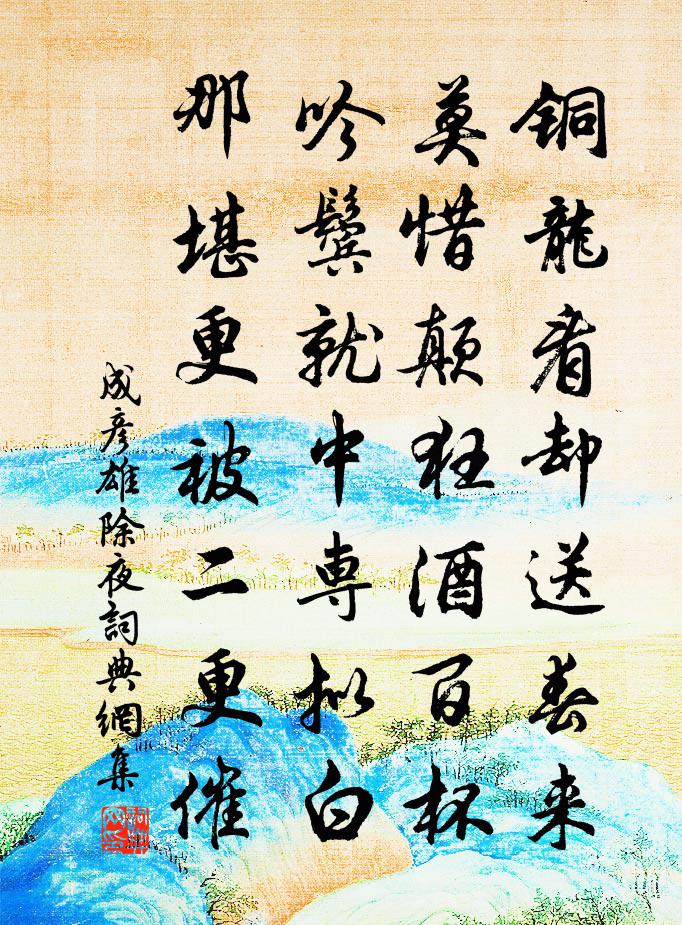 铜龍看却送春来
莫惜颠狂酒百杯
吟鬓就中専拟白
那堪更被二更催
成彦雄除夜詞典網集